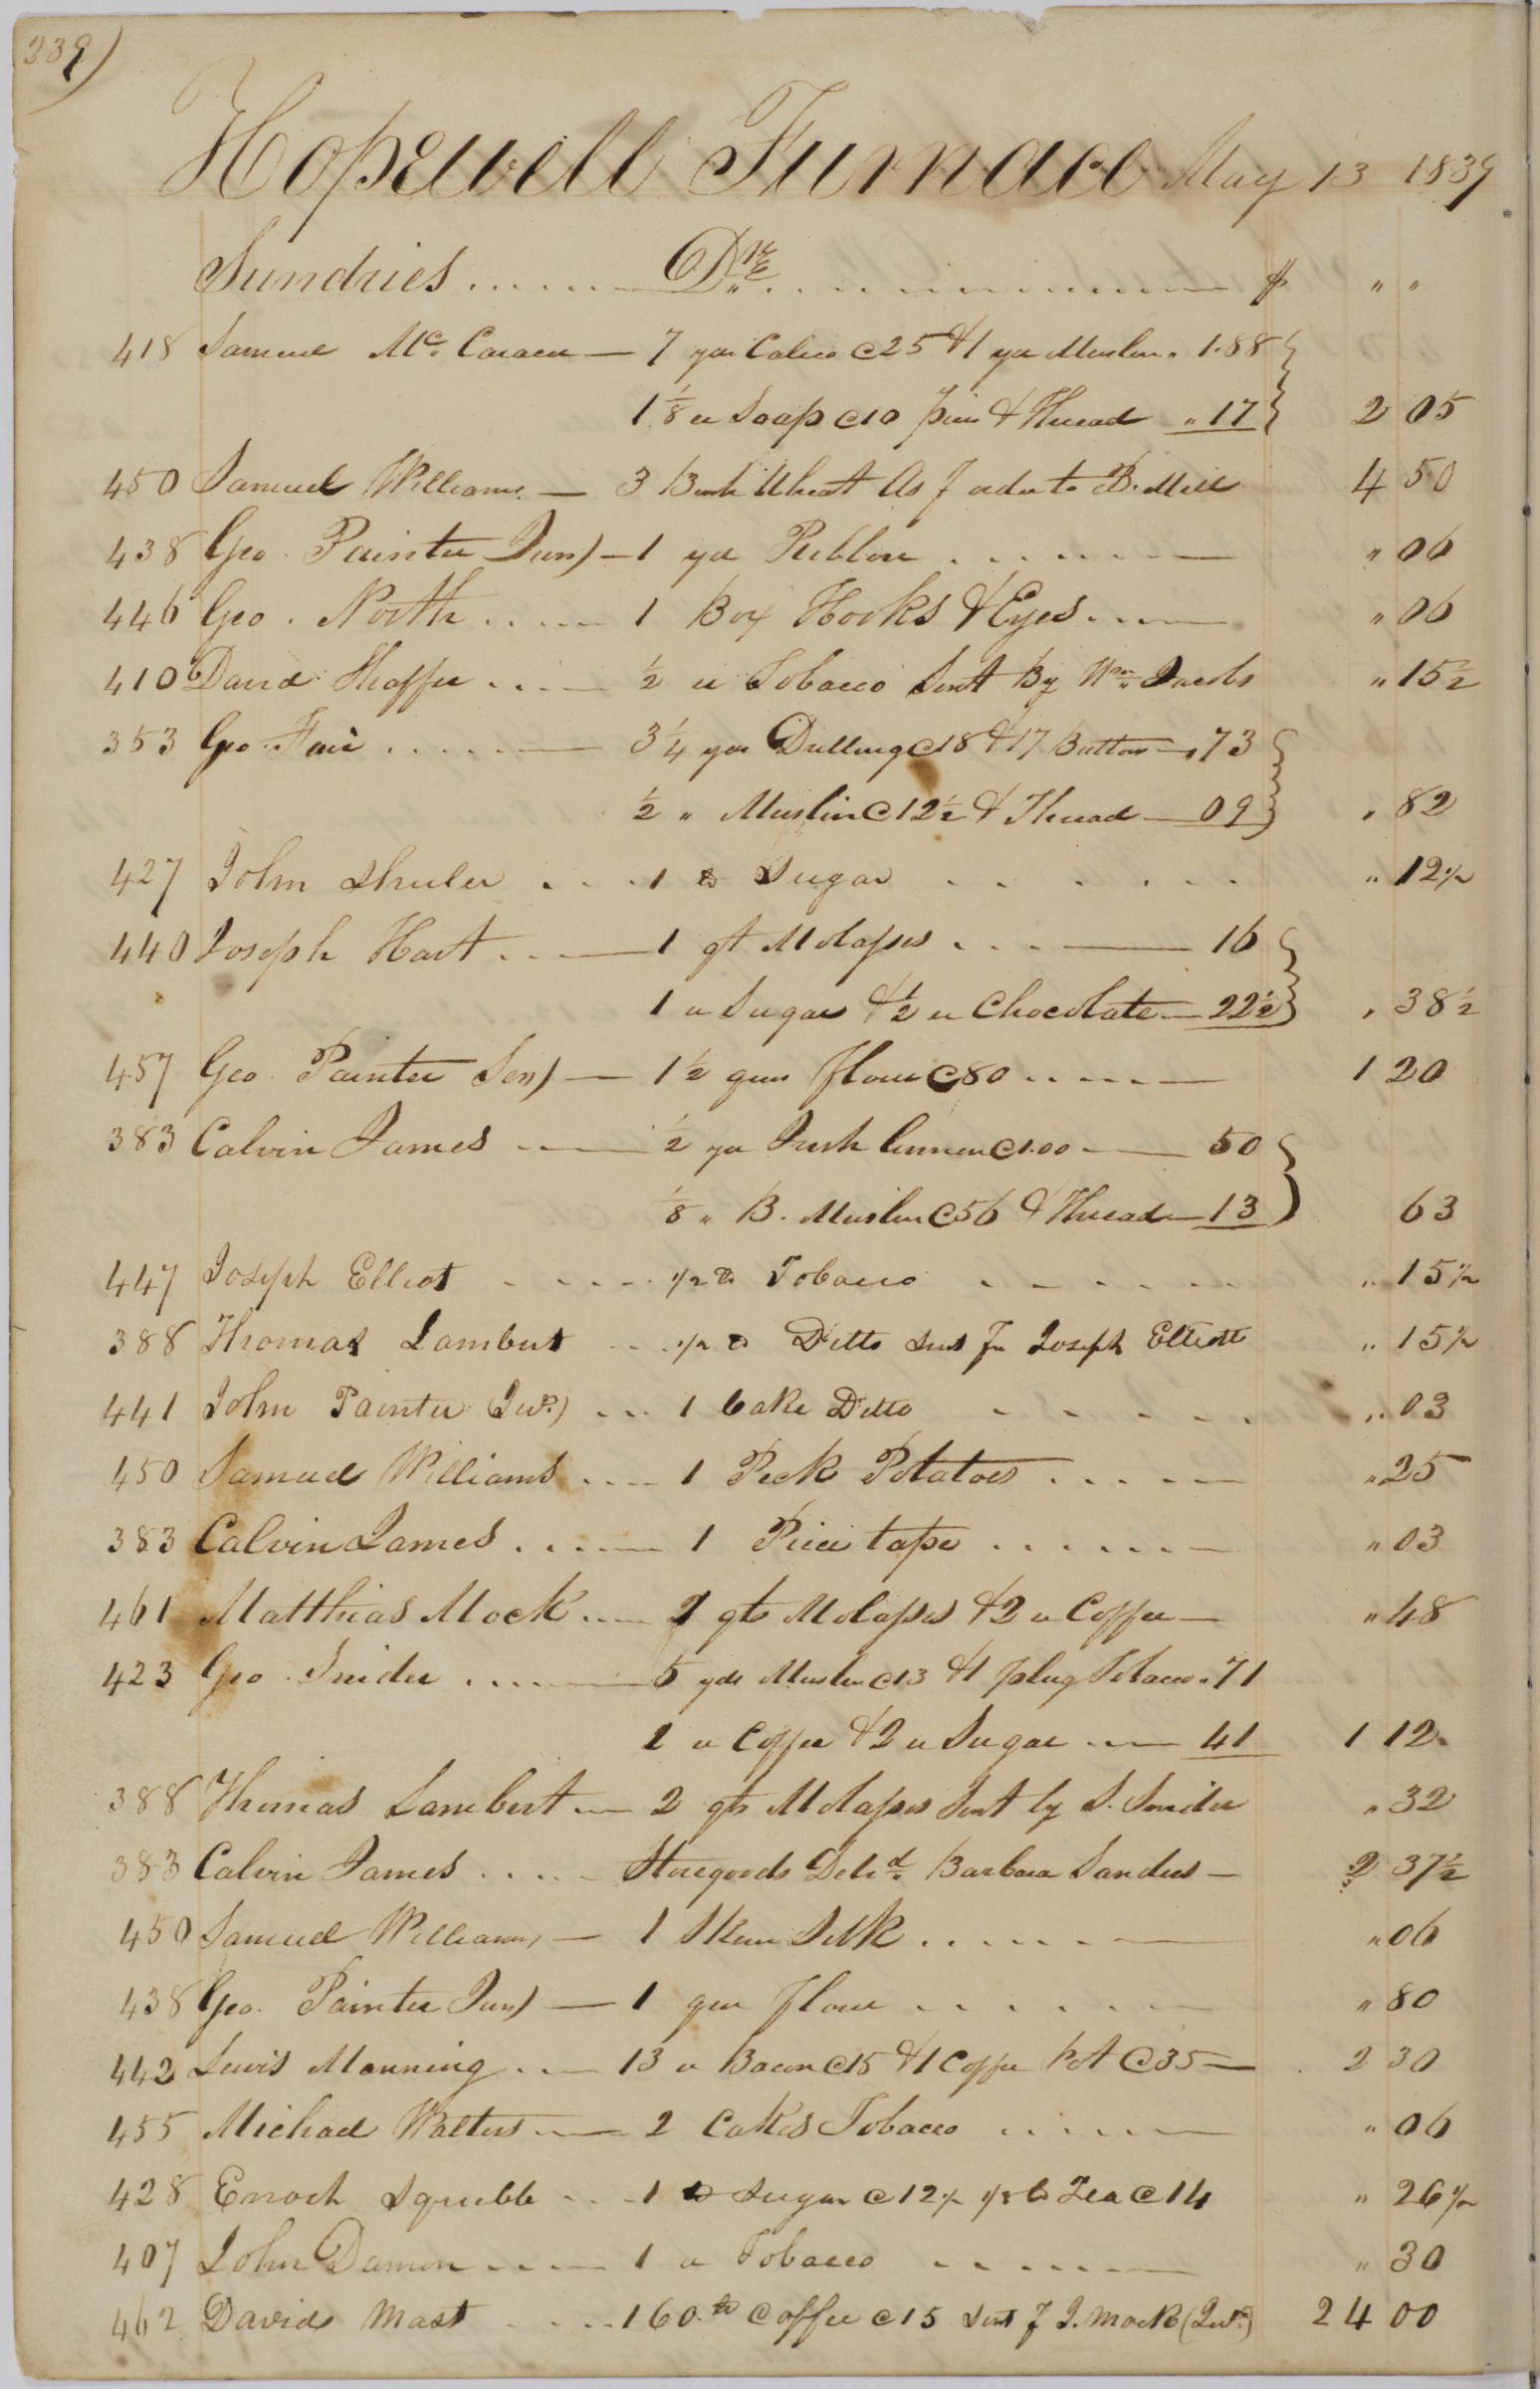 239)
Hopewell Furnace May 13 1839
Sundries ...... Drs ...... $ " "
418 Samuel Mc. Caraen — 7 yds Calico @25 & 1 yd Muslin " 1.88
1 1/8 " Soap @10 pins & Thread " 17 2 05
450 Samuel Williams — 3 Bush Wheat As p order to B. Mill 4 50
438 Geo. Painter Jun) — 1 yd Ribbon ...... " 06
446 Geo. North ..... 1 Box Hooks & Eyes .... " 06
410 David Shaffer .... 1/2 " Tobacco Sent By Wm Jacobs " 15 1/2
353 Geo. Fair ..... 3 1/4 yds Drilling @18 & 17 Buttons — " 73
1/2 " Muslin @12 1/2 & Thread — 09 " 82
427 John Shuler ... 1 lb Sugar ...... " 12 1/2
440 Joseph Hart ... 1 qt Molasses ... 16
1 " Sugar & 1/2 " Chocolate — 22 1/2 " 38 1/2
457 Geo. Painter Sen) — 1 1/2 qur flour @80 ..... 1 20
383 Calvin James — 1/2 yd Irish linnen @1.00 — 50
1/8 " B. Muslin @56 & Thread — 13 63
447 Joseph Elliot .... 1/2 lb Tobacco ...... " 15 1/2
388 Thomas Lambert ... 1/2 lb Ditto Sent pr Joseph Elliott " 15 1/2
441 John Painter Jur.) ... 1 Cake Ditto ...... " 03
450 Samuel Williams .... 1 Peck Potatoes ..... " 25
383 Calvin James ..... 1 Piece tape ...... " 03
461 Matthias Mock .... 2 qts Molasses & 2 " Coffee — " 48
423 Geo. Snider ..... 5 yds Muslin @13 & 1 plug Tobacco " 71
1 " Coffee & 2 " Sugar ... 41 1 12
388 Thomas Lambert — 2 qts Molasses Sent by S. Snider " 32
383 Calvin James .... Storegoods Delivd. Barbara Sanders — 2 37 1/2
450 Samuel Williams — 1 Skein Silk ...... " 06
438 Geo. Painter Jun) — 1 qur flour ...... " 80
442 Lewis Manning ... 13 " Bacon @15 & 1 Coffee Pot @35 — 2 30
455 Michael Walters — 2 Cakes Tobacco ..... " 06
428 Enoch Squibb ... 1 lb Sugar @12 1/2 1/8 lb Tea @14 " 26 1/2
407 John Damon .... 1 " Tobacco ...... " 30
462 David Mast .... 160 lb Coffee @15 Sent p J. Mock (Jur.) 24 00